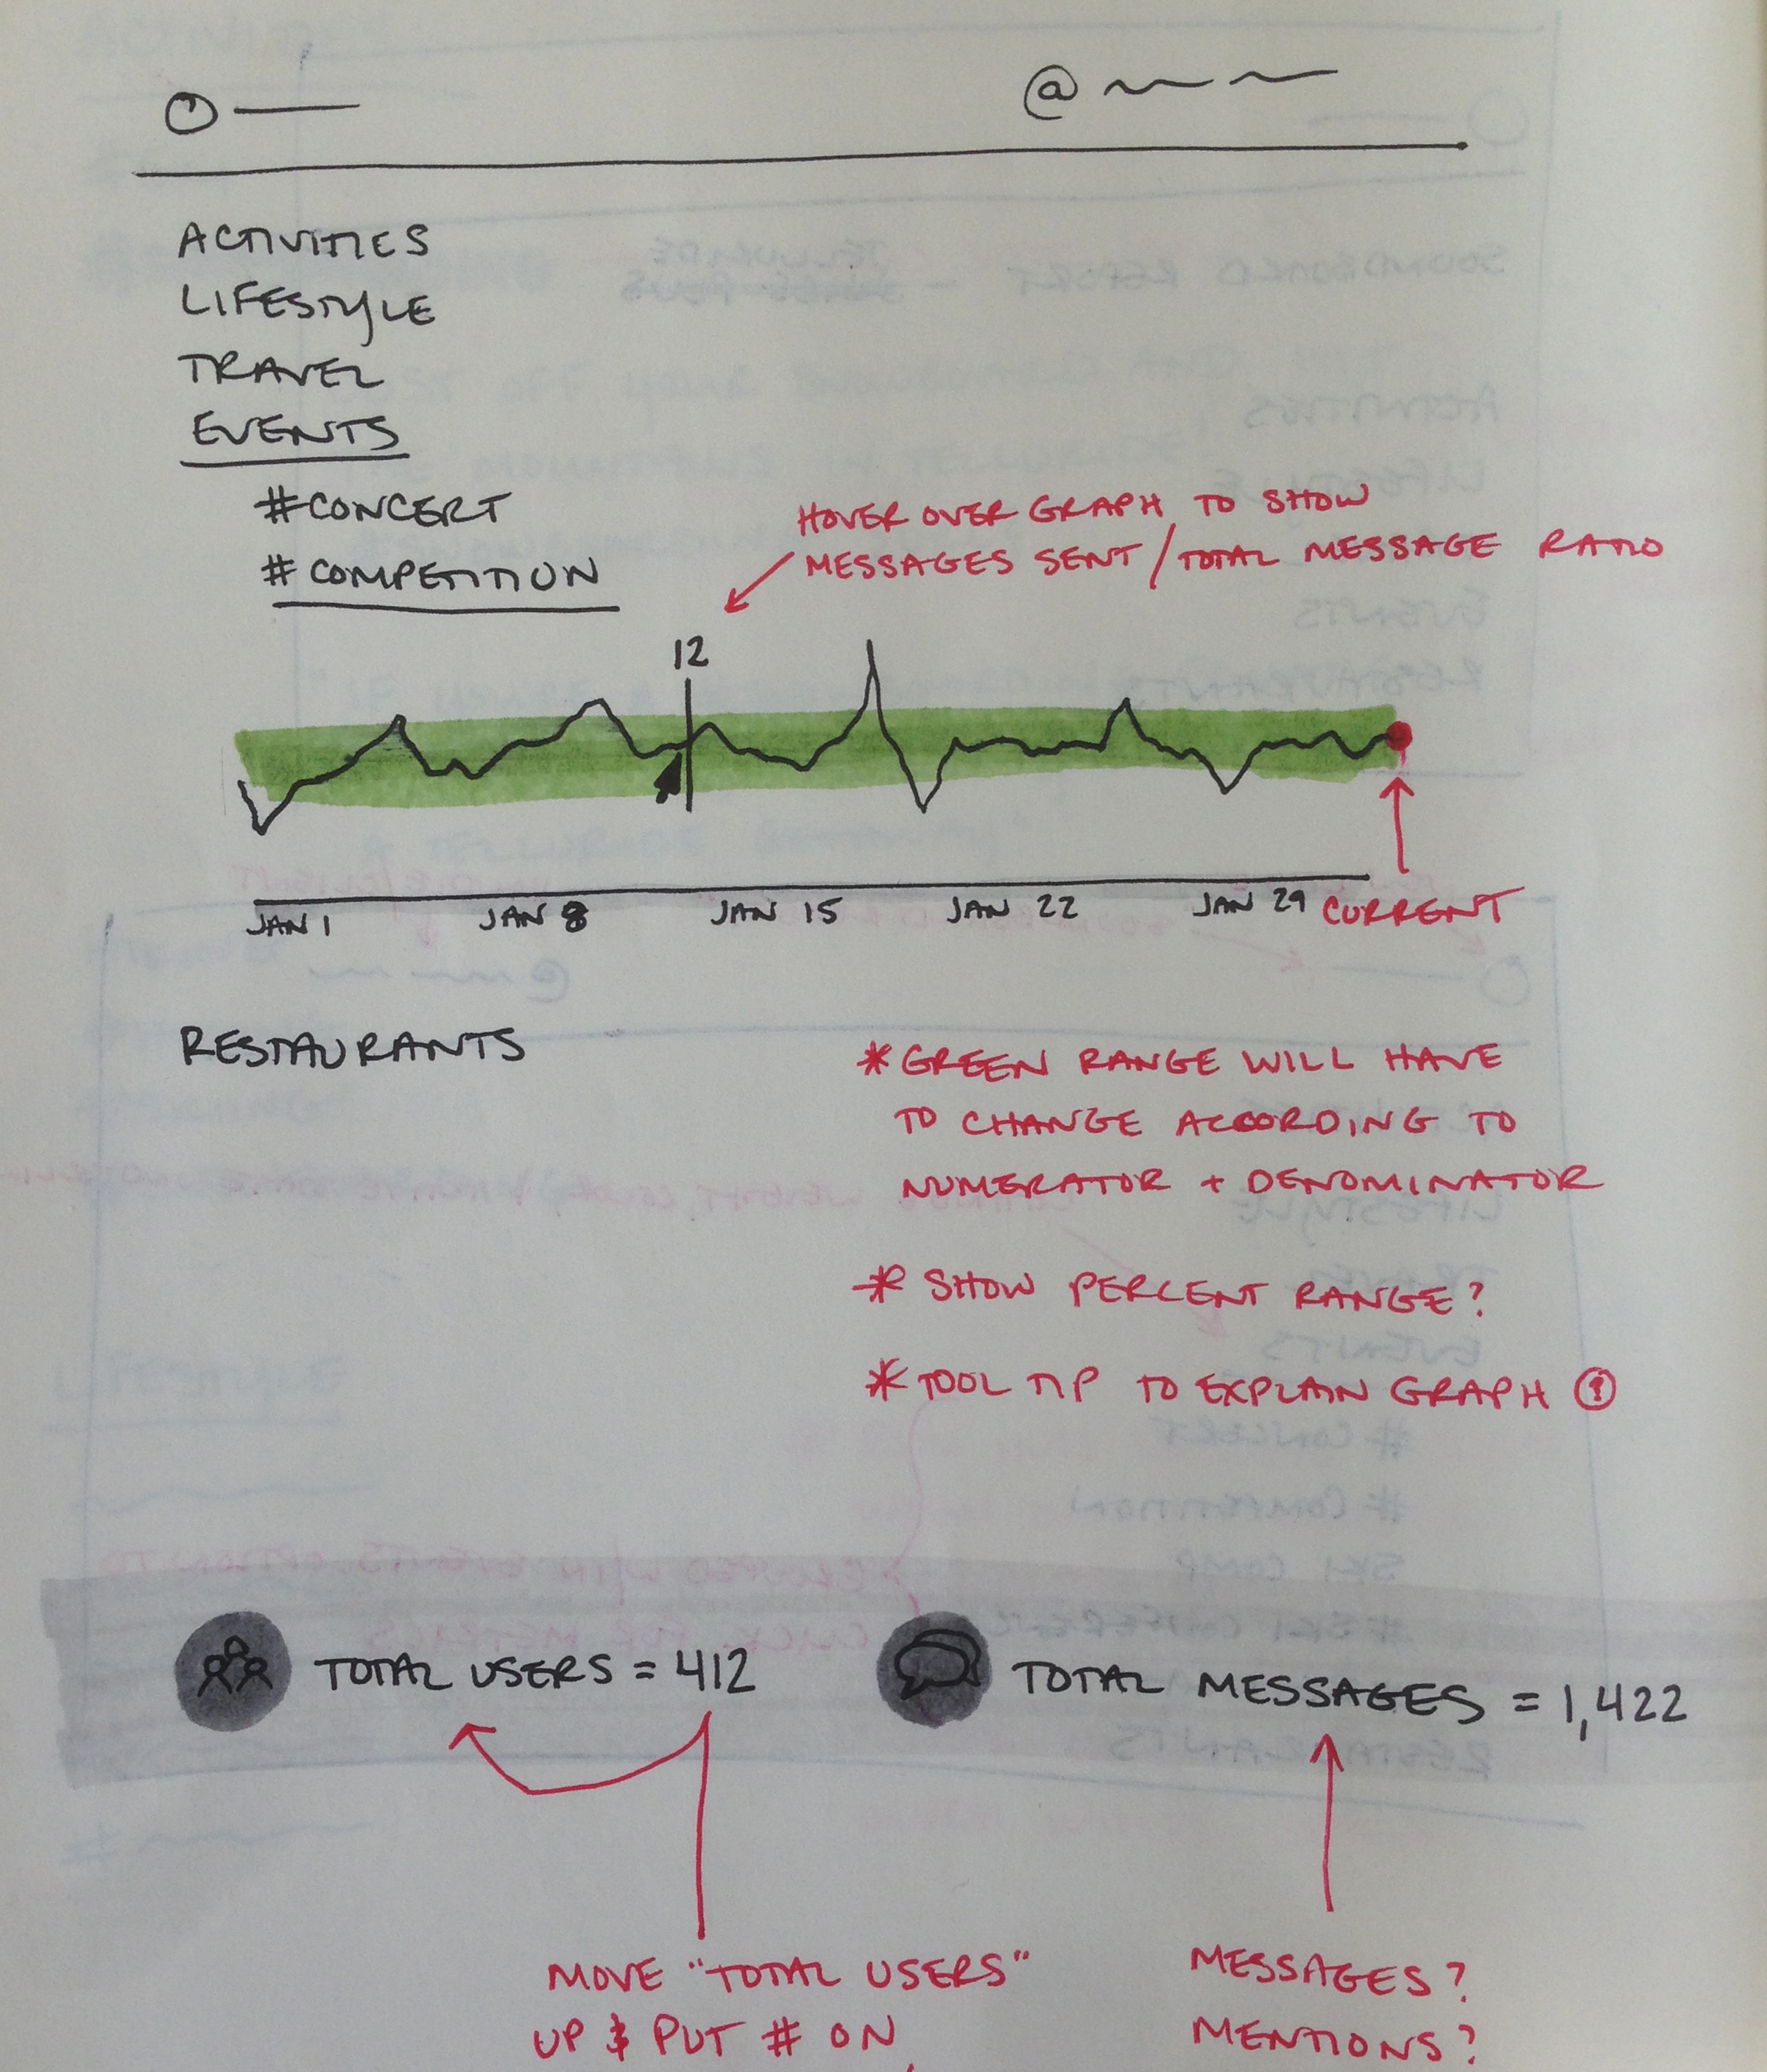 @
ACTIVITIES
LIFESTYLE
TRAVEL
EVENTS
#CONCERT
#COMPETITION
HOVER OVER GRAPH TO SHOW
MESSAGES SENT / TOTAL MESSAGE RATIO
12
JAN 1 JAN 8 JAN 15 JAN 22 JAN 29 CURRENT
RESTAURANTS
* GREEN RANGE WILL HAVE
TO CHANGE ACCORDING TO
NUMERATOR + DENOMINATOR
* SHOW PERCENT RANGE?
* TOOL TIP TO EXPLAIN GRAPH
TOTAL USERS = 412
TOTAL MESSAGES = 1,422
MOVE "TOTAL USERS"
UP & PUT # ON
MESSAGES?
MENTIONS?